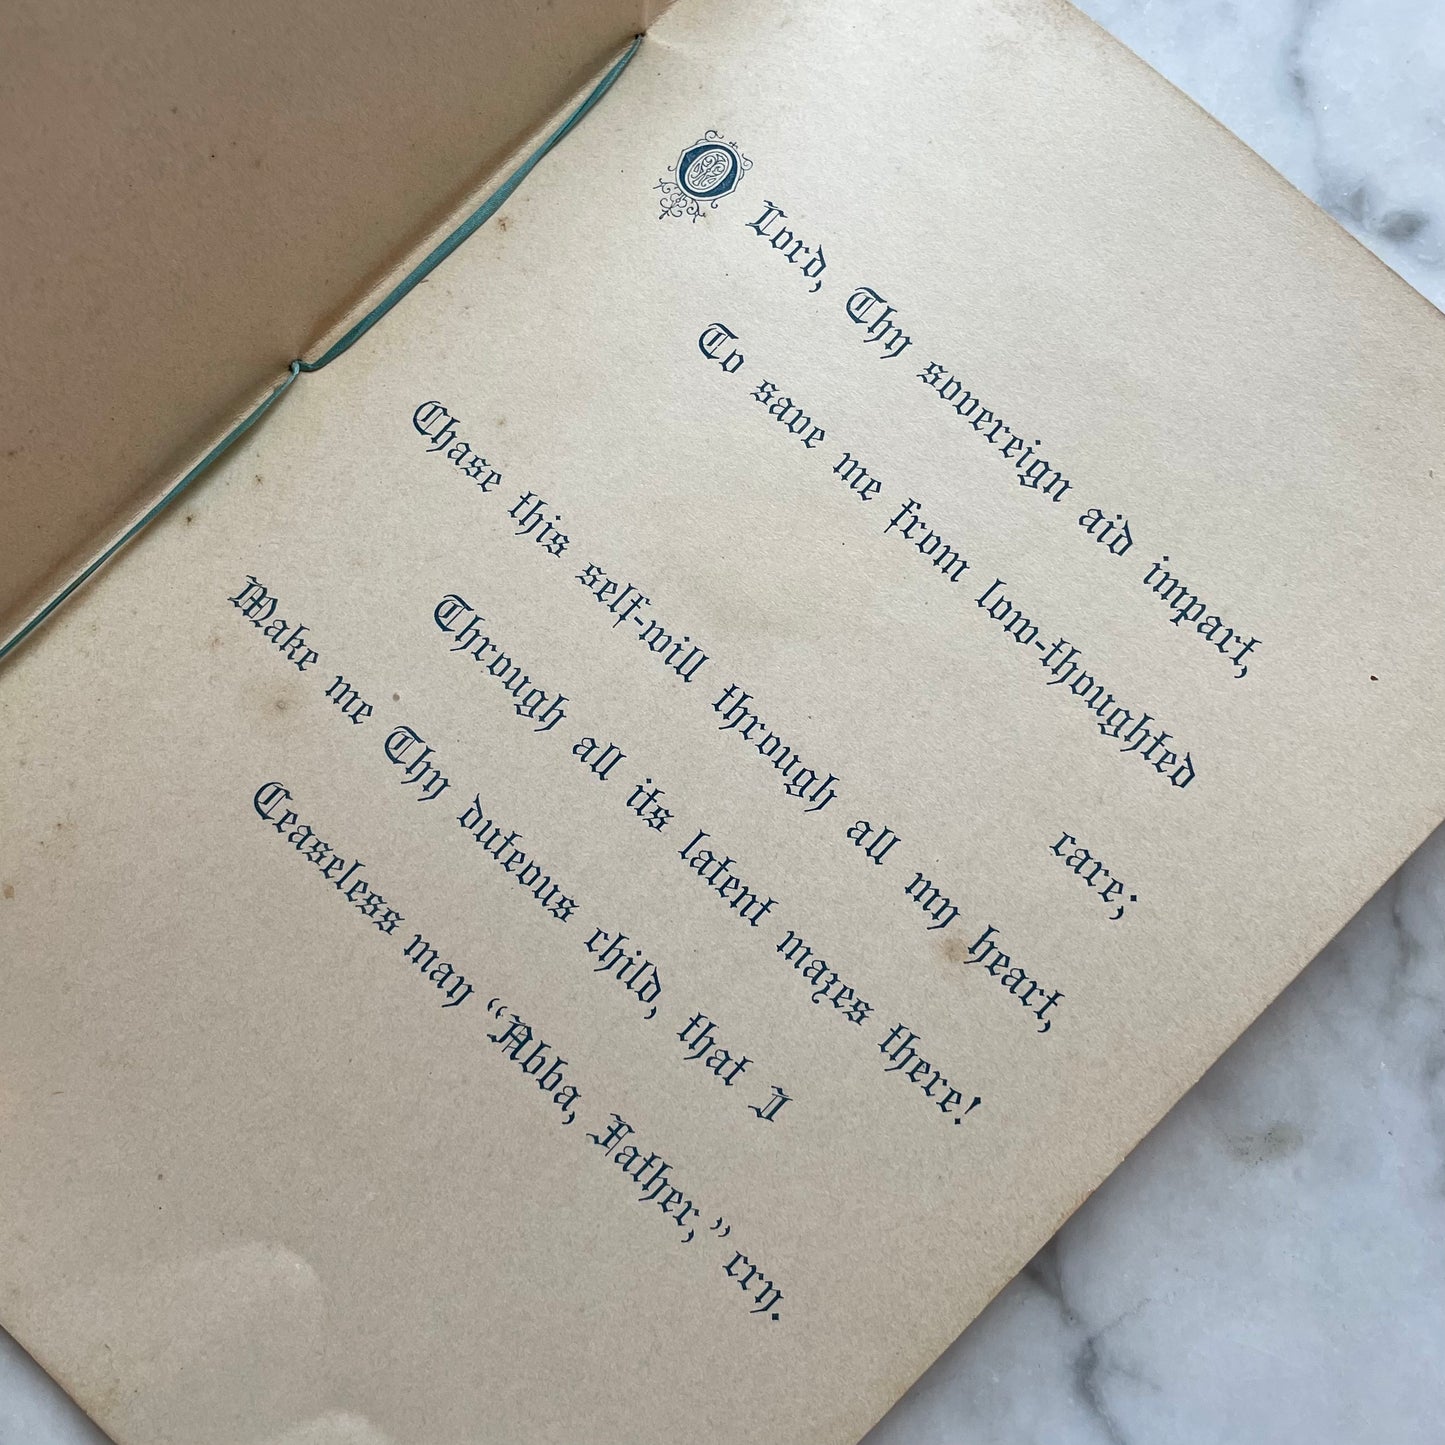 O Lord, Thy sovereign aid impart,
To save me from low-thoughted
care;
Chase this self-will through all my heart,
Through all its latent mazes there!
Make me Thy duteous child, that I
Ceaseless may “Abba, Father,” cry.